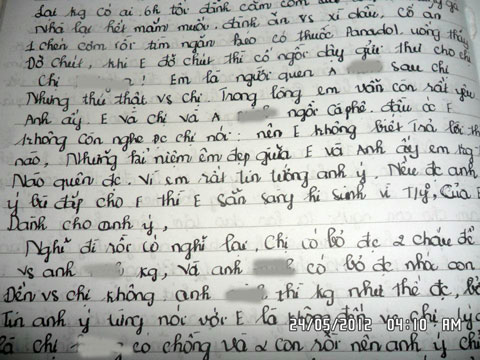 Lại kg có ai ốh tôi đành cầm cơm
Nhà lại hết mắm muối. đành ăn vs xì dầu, Cố ăn
1 chén cơm rồi tìm ngăn kéo có thuốc Panadol, uống thấy
Đỡ chút, khi E đỡ chút thì có ngồi dậy gửi thư cho chị
Chị ! Em là người quen A sau chị
Nhưng thú thật vs chị. Trong lòng em vẫn còn rất yêu
Anh ấy. E và chị và A ngồi cà phê. đầu óc E
không còn nghe đc chị nói. nên E không biết trả lời thế
nào, Nhưng kỉ niệm êm đẹp giữa E và Anh ấy em kg
Nào quên đc. vì em rất tin tưởng anh ý. Nếu đc anh
ý bù đắp cho E thì E sẵn sàng hi sinh vì T/y, Của E
Dành cho anh ý,
Nghĩ đi rồi có nghĩ lại, Chị có bỏ đc 2 cháu để
vs anh kg, và anh có bỏ đc nhà con
Đến vs chị không anh thì kg như thế đc,
Tin anh ý từng nói với E là không đối với chị
là chị có chồng và 2 con rồi nên anh ý
24/05/2012 04:10 AM